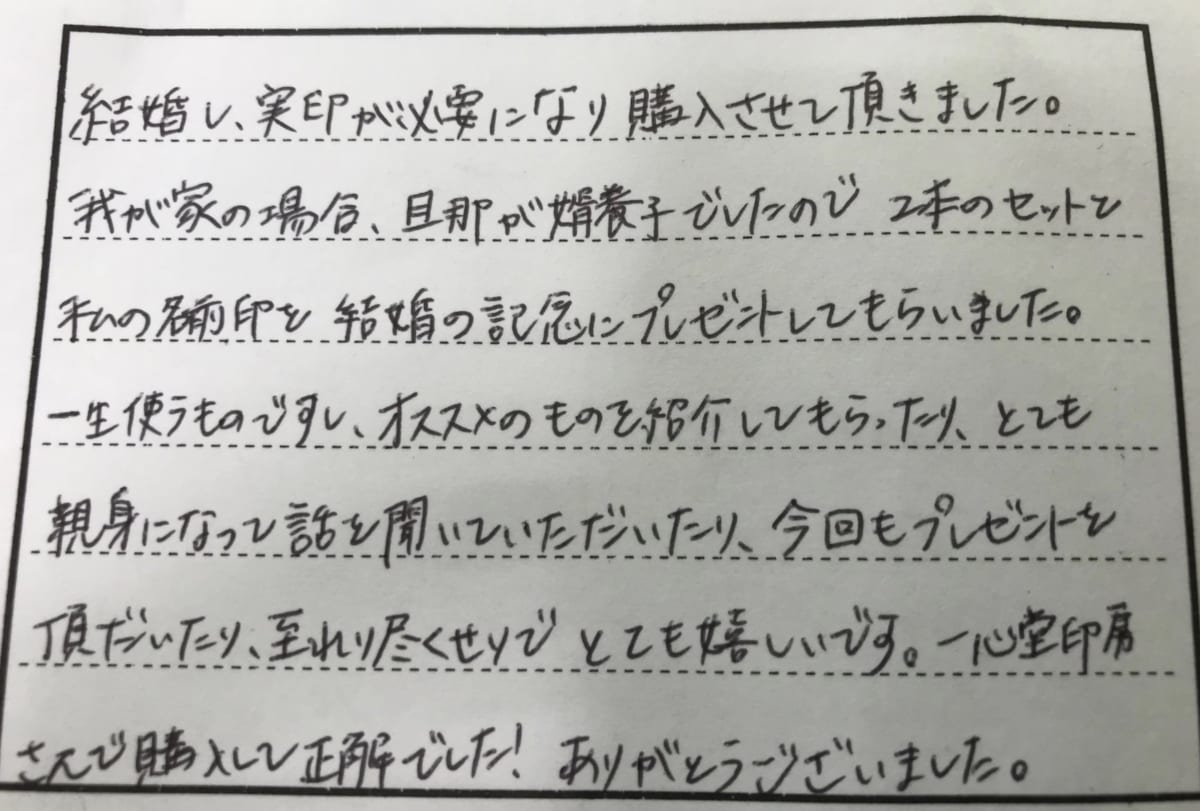 結婚し、実印が必要になり購入させて頂きました。
我が家の場合、旦那が婿養子でしたので 2本のセットと
私の名前印を 結婚の記念にプレゼントしてもらいました。
一生使うものですし、オススメのものを紹介してもらったり、とても
親身になって話を聞いていただいたり、今回もプレゼントを
頂だいたり、至れり尽くせりで とても嬉しいです。一心堂印房
さんで購入して正解でした! ありがとうございました。